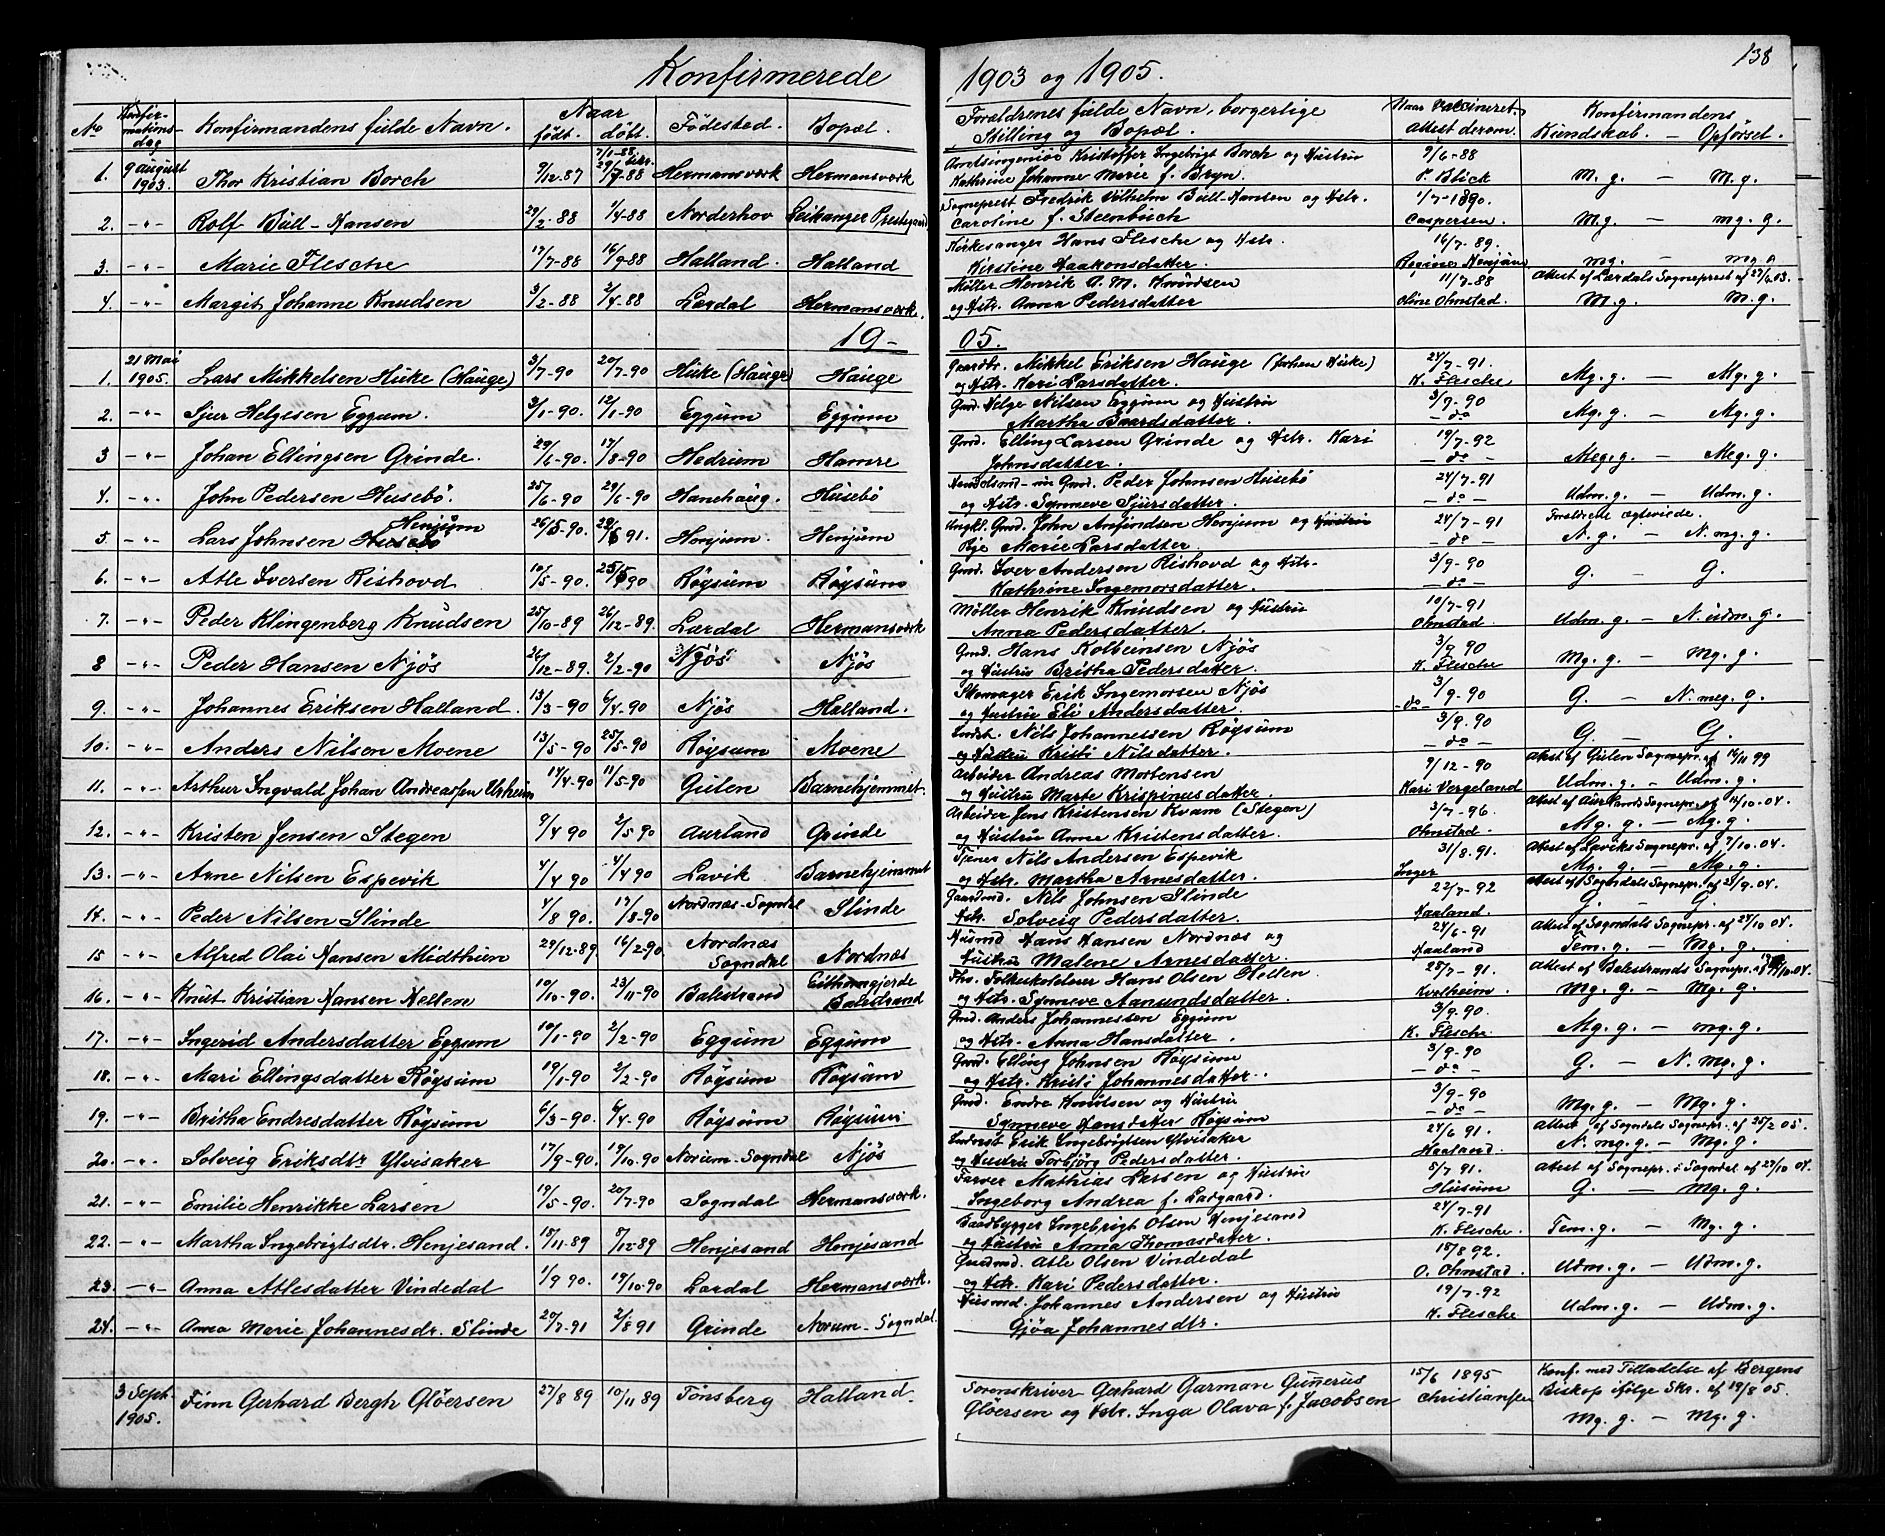 Konfirmerede 1903 og 1905. 138
No Konfirmationsdag Konfirmandens fulde Navn. Naar født. døbt. Fødested. Bopæl. Forældrenes fulde Navn, borgerlige Stilling og Bopæl. Naar vaccineret. Attest derom. Konfirmandens Kundskab. — Opførsel.
1. 9 August 1903. Thor Kristian Borch 9/12-87 Hermansværk Hermansværk Amtsingeniør Kristoffer Ingebrigt Borch og Hustru Kathrine Johanne Marie f. Bryn. 9/6-88 P. Blick M. g. — M. g.
2. -"- Rolf Bull-Hansen 29/2-88 1/4-88 Norderhov Leikanger Prestegaard Sogneprest Fredrik Vilhelm Bull-Hansen og Hstr. Caroline f. Steenbuch 1/7-1890. Caspersen. M.g. — mg. g.
3. -"- Marie Flesche 17/7-88 16/9-88 Halland. Halland Kirkesanger Hans Flesche og Hstr. Kirstine Haakonsdatter. 16/7-89. Regine Henjum mg. — mg.
4. -"- Margit Johanne Knudsen 3/2-88 2/4-88 Lærdal Hermansværk. Møller Henrik A. M. Knudsen og Hstr. Anna Pedersdatter 11/7-88 Oline Ohnstad. Attest af Lærdals Sogneprest af 27/6 03. M.g. — M.g.
19-05.
1. 21 Mai 1905. Lars Mikkelsen Huke (Hauge) 3/7-90 20/7-90 Huke (Hauge) Hauge Gaardbr. Mikkel Eriksen Hauge (forhen Huke) og Hstr. Kari Larsdatter. 24/7-91. K. Flesche Mg. g. — Mg. g.
2. -"- Sjur Helgesen Eggum. 3/1-90. 12/1-90 Eggum Eggum Gmd. Helge Nilsen Eggum og Hustru Martha Baardsdatter. 3/9-90 -do- Mg. g. — Mg. g.
3 -"- Johan Ellingsen Grinde. 29/6-90. 17/8-90 Hedrum Hamre Gmd. Elling Larsen Grinde og Hstr. Kari Johnsdatter. 19/7-92 -do- Meg. g. — Meg. g.
4. -"- John Pedersen Husebö. 25/6-90 29/6-90 Hanehaug. Husebö Gmd. Peder Johnsen Husebö og Hstr. Synneve Sjursdatter. 24/7-91 -do- Udm. g. — Udm. g.
5. -"- Lars Johnsen Henjum 26/5-90. Henjum. Henjum Ungkl. Gmd. John Arnfindsen Henjum og Pige Marie Larsdatter. 24/7-91 -do- Forældrene ægteviede. N. g. — N. mg. g.
6. -"- Atle Iversen Rishovd 10/5-90. Röysum Röysum Gmd. Iver Andersen Rishovd og Hstr. Kathrine Ingemorsdatter. 3/9-90 -do- G. — G.
7. -"- Peder Klingenberg Knudsen 25/10-89 26/12-89. Lærdal Hermansværk Möller Henrik Knudsen og Hustru Anna Pedersdatter. 10/7-91 Ohnstad. Udm. g. — N. udm. g.
8 -"- Peder Hansen Njös 26/12-89. 2/2-90 Njös Njös Gmd. Hans Kolbensen Njös og Hustru Britha Pedersdatter. 3/9 90 K. Flesche Mg. g. — Mg. g.
9. -"- Johannes Eriksen Halland. 13/3-90 6/4-90 Njös Halland. Skomager Erik Ingemorsen Njös og Hustru Eli Andersdatter. 3/9-90 -do- G. — N. meg. g.
10. -"- Anders Nilsen Moene 13/5-90 25/5-90 Röysum Moene Nils Johannessen Röysum og Hustru Kristi Nilsdatter. 3/9.90 -do- G. — G.
11. -"- Arthur Ingvald Johan Andreassen Urheim 14/4-90 11/5-90 Gulen Barnehjemmet. Arbeider Andreas Mortensen og Hustru Marte Krispinusdatter. 9/12-90 Kari Vergeland Attest af Gulen Sognepr. af 16/11 99 Udm. g. — Udm. g.
12. -"- Kristen Jensen Stegen 9/4 90 2/5 90 Aurland Grinde Arbeider Jens Kristensen Kvam (Stegen) og Hustru Anne Kristensdatter. 3/7-96. Ohnstad. Attest af Aurlands Sognepr. af 14/10-04. Mg. g. — Mg. g.
13. -"- Arne Nilsen Espevik 4/4 90 4/4 90 Lavik Barnehjemmet Tjener Nils Andersen Espevik og Hstr. Martha Arnesdatter. 31/8.91. Inger Attest af Laviks Sognepr. af 7/10.04. Mg. g. — Mg. g.
14. -"- Peder Nilsen Slinde 4/8 90. 17/8-90 Nordnæs-Sogndal Slinde Gaardmd. Nils Johnsen Slinde Hstr. Solveig Pedersdatter. 22/7-92 Haaland. Attest af Sogndals Sognepr. af 21/9.04. G. — G.
15 -"- Alfred Olai Hansen Midthun 29/12-89 16/2-90. Nordnæs Sogndal Nordnæs Husmd Hans Hansen Nordnæs og Hustru Malene Arnesdatter. 24/6-91 Haaland Attest af Sogndals Sognepr. af 24/10 04. Tem. g. — Mg. g.
16. -"- Knut Kristian Hansen Hellen 10/10-90. 23/11-90 Balestrand Balestrand Fhv. Folkeskolelærer Hans Olsen Hellen og Hstr. Synneve Aamundsdatter. 28/7-91. Kvelheim. Attest af Balestrands Sognepr. Mg. g. — Mg. g.
17. -"- Ingerid Andersdatter Eggum 10/1-90 2/2-90 Eggum Eggum Gmd. Anders Johannessen Eggum og Hstr. Anna Hansdatter. 3/9.90. K. Flesche Mg. g. — mg. g.
18. -"- Mari Ellingsdatter Röysum 19/1-90 2/2-90 Röysum Röysum Gmd. Elling Johnsen Röysum og Hstr. Kristi Johannesdatter. 3/9-90 -do- G. — N. mg. g.
19. -"- Britha Endresdatter Röysum 6/3-90. 6/4-90 Röysum Röysum Gmd. Endre Knutsen og Hustru Synneve Hansdatter Röysum 3/9-90 -do- Mg. g. — Mg. g.
20. -"- Solveig Eriksdtr Ylvisaker 17/9-90. 19/10-90 Norum-Sogndal Njös Erik Ingebrigtsen Ylvisaker og Hustru Torbjörg Pedersdatter. 24/6 91. Haaland Attest af Sogndals Sognepr. af 25/2 05. N. mg. g. — Mg. g.
21. -"- Emilie Henrikke Larsen 19/5-90. 20/7-90 Sogndal Hermansværk. Farver Mathias Larsen og Hustru Ingeborg Andrea f. Ladgaard. 5/7 91. Husum Attest af Sognepr. i Sogndal af 27/10 04. G. — Mg. g.
22. -"- Martha Ingebrigtsdtr. Henjesand. 15/11-89 8/12-89 Henjesand Henjesand Baadbygger Ingebrigt Olsen Henjesand og Hustru Anna Thomasdatter. 24/7-91 K. Flesche. Tem. g. — Mg. g.
23. -"- Anna Atlesdatter Vindedal 1/9 90. 19/10-90 Lærdal Hermansværk. Atle Olsen Vindedal og Hstr. Kari Pedersdatter. 18/8 92. O. Ohnstad. Udm. g. — Udm. g.
24. -"- Anna Marie Johannesdr. Slinde 20/7-91 2/8 91 Grinde Norum-Sogndal. Husmd. Johannes Andersen og Hustru Gjöa Johannesdtr. 19/7-92 K. Flesche Udm. g. — Udm. g.
3 Septr. 1905. Finn Gerhard Bergh Glöersen 27/8 89 10/11 89 Tönsberg Halland. Sorenskriver Gerhard Garman Gunerus Glöersen og Hstr. Inga Olava f. Jacobsen 15/6 1895 Christiansen Konf. med Tilladelse af Bergens Biskop ifölge Skr. af 19/8 05. Mg. g. — Mg. g.